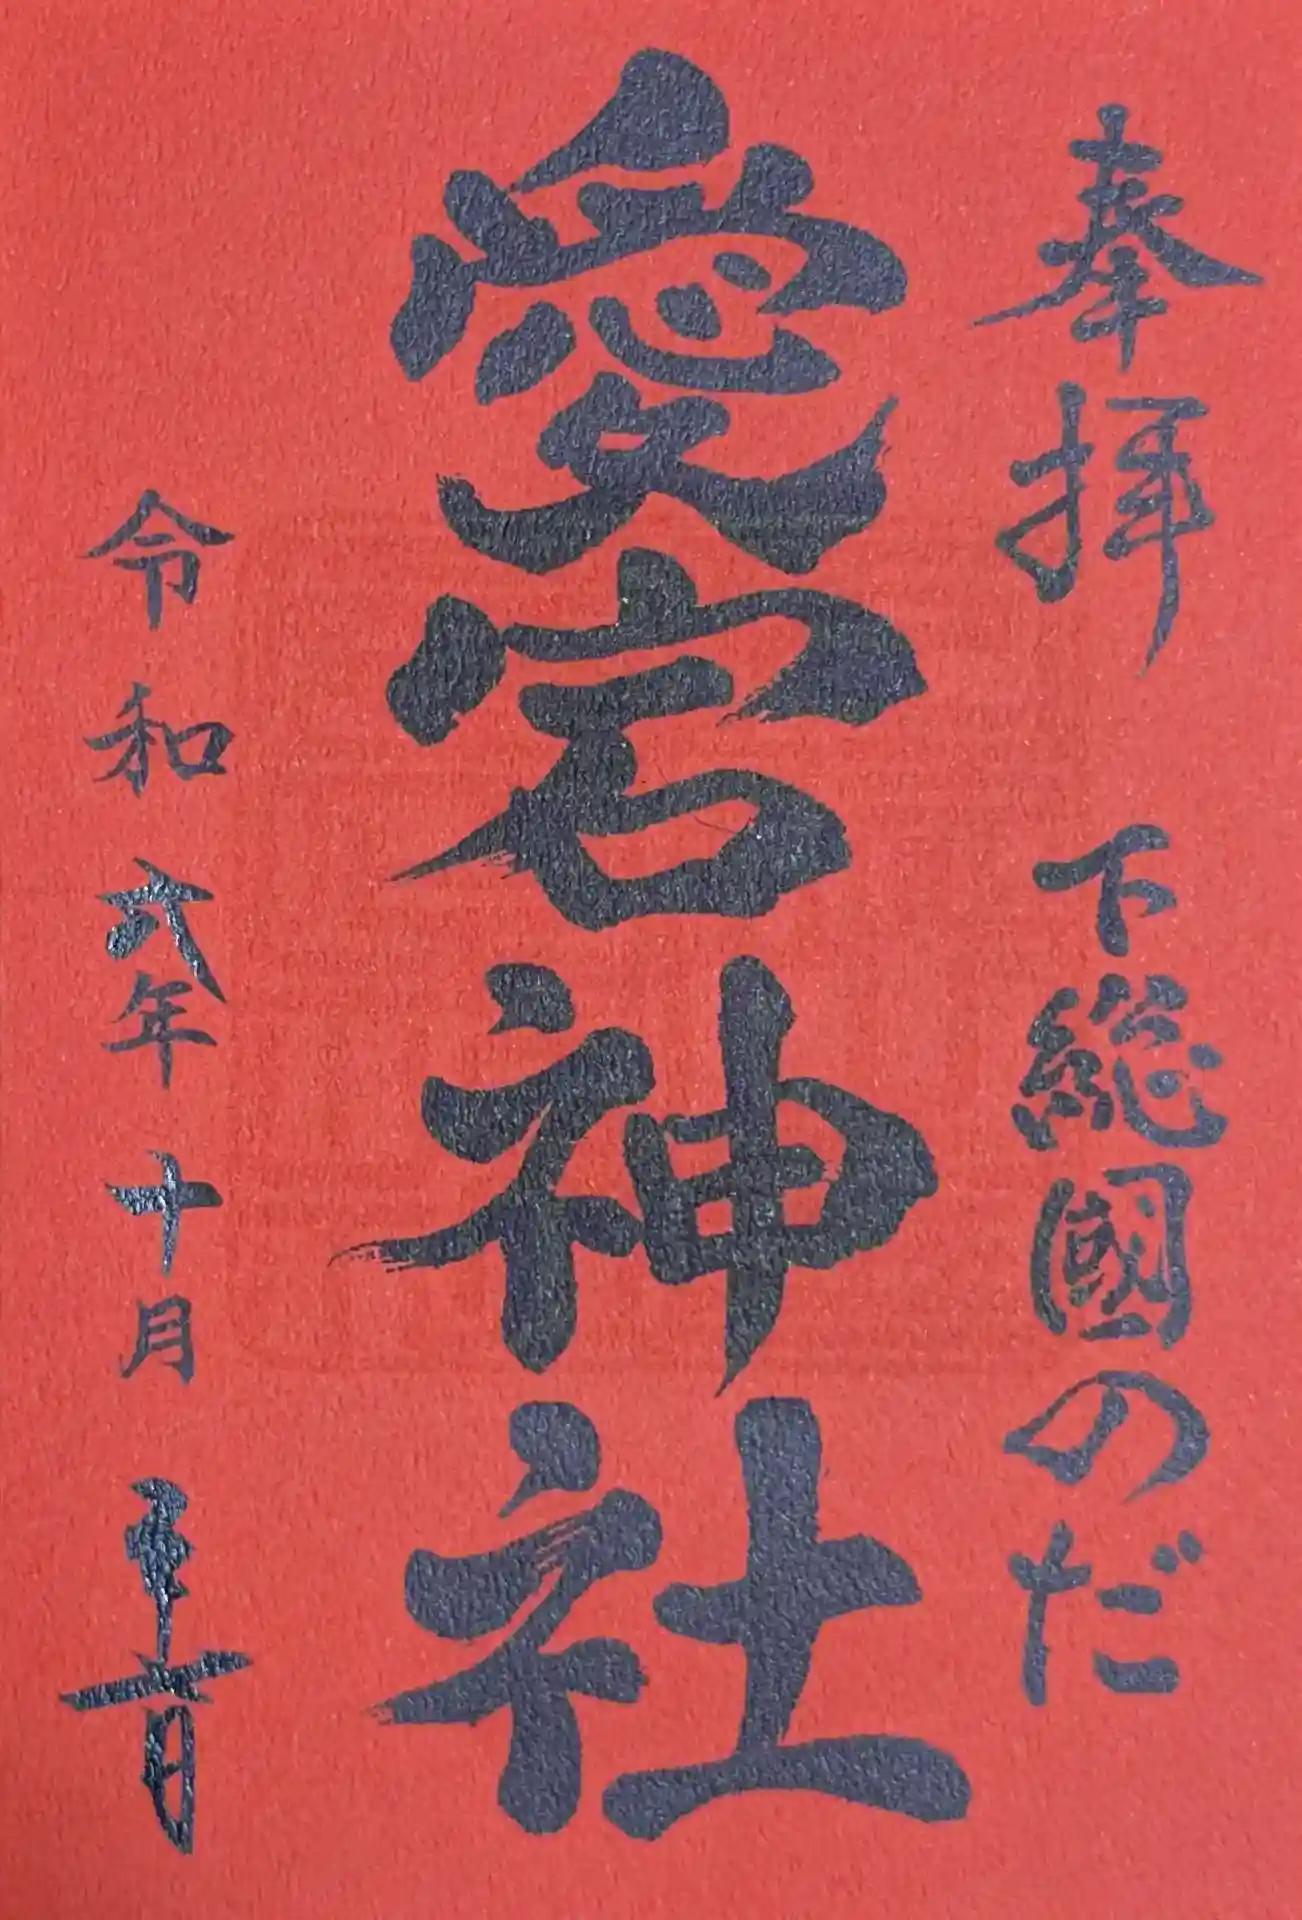 奉拝 下総國のだ
愛宕神社
令和弐年十月 日